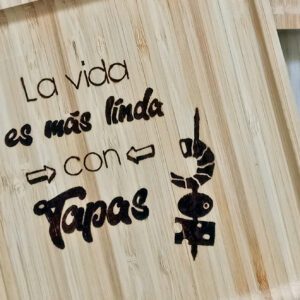 La vida
es más linda
con
Tapas